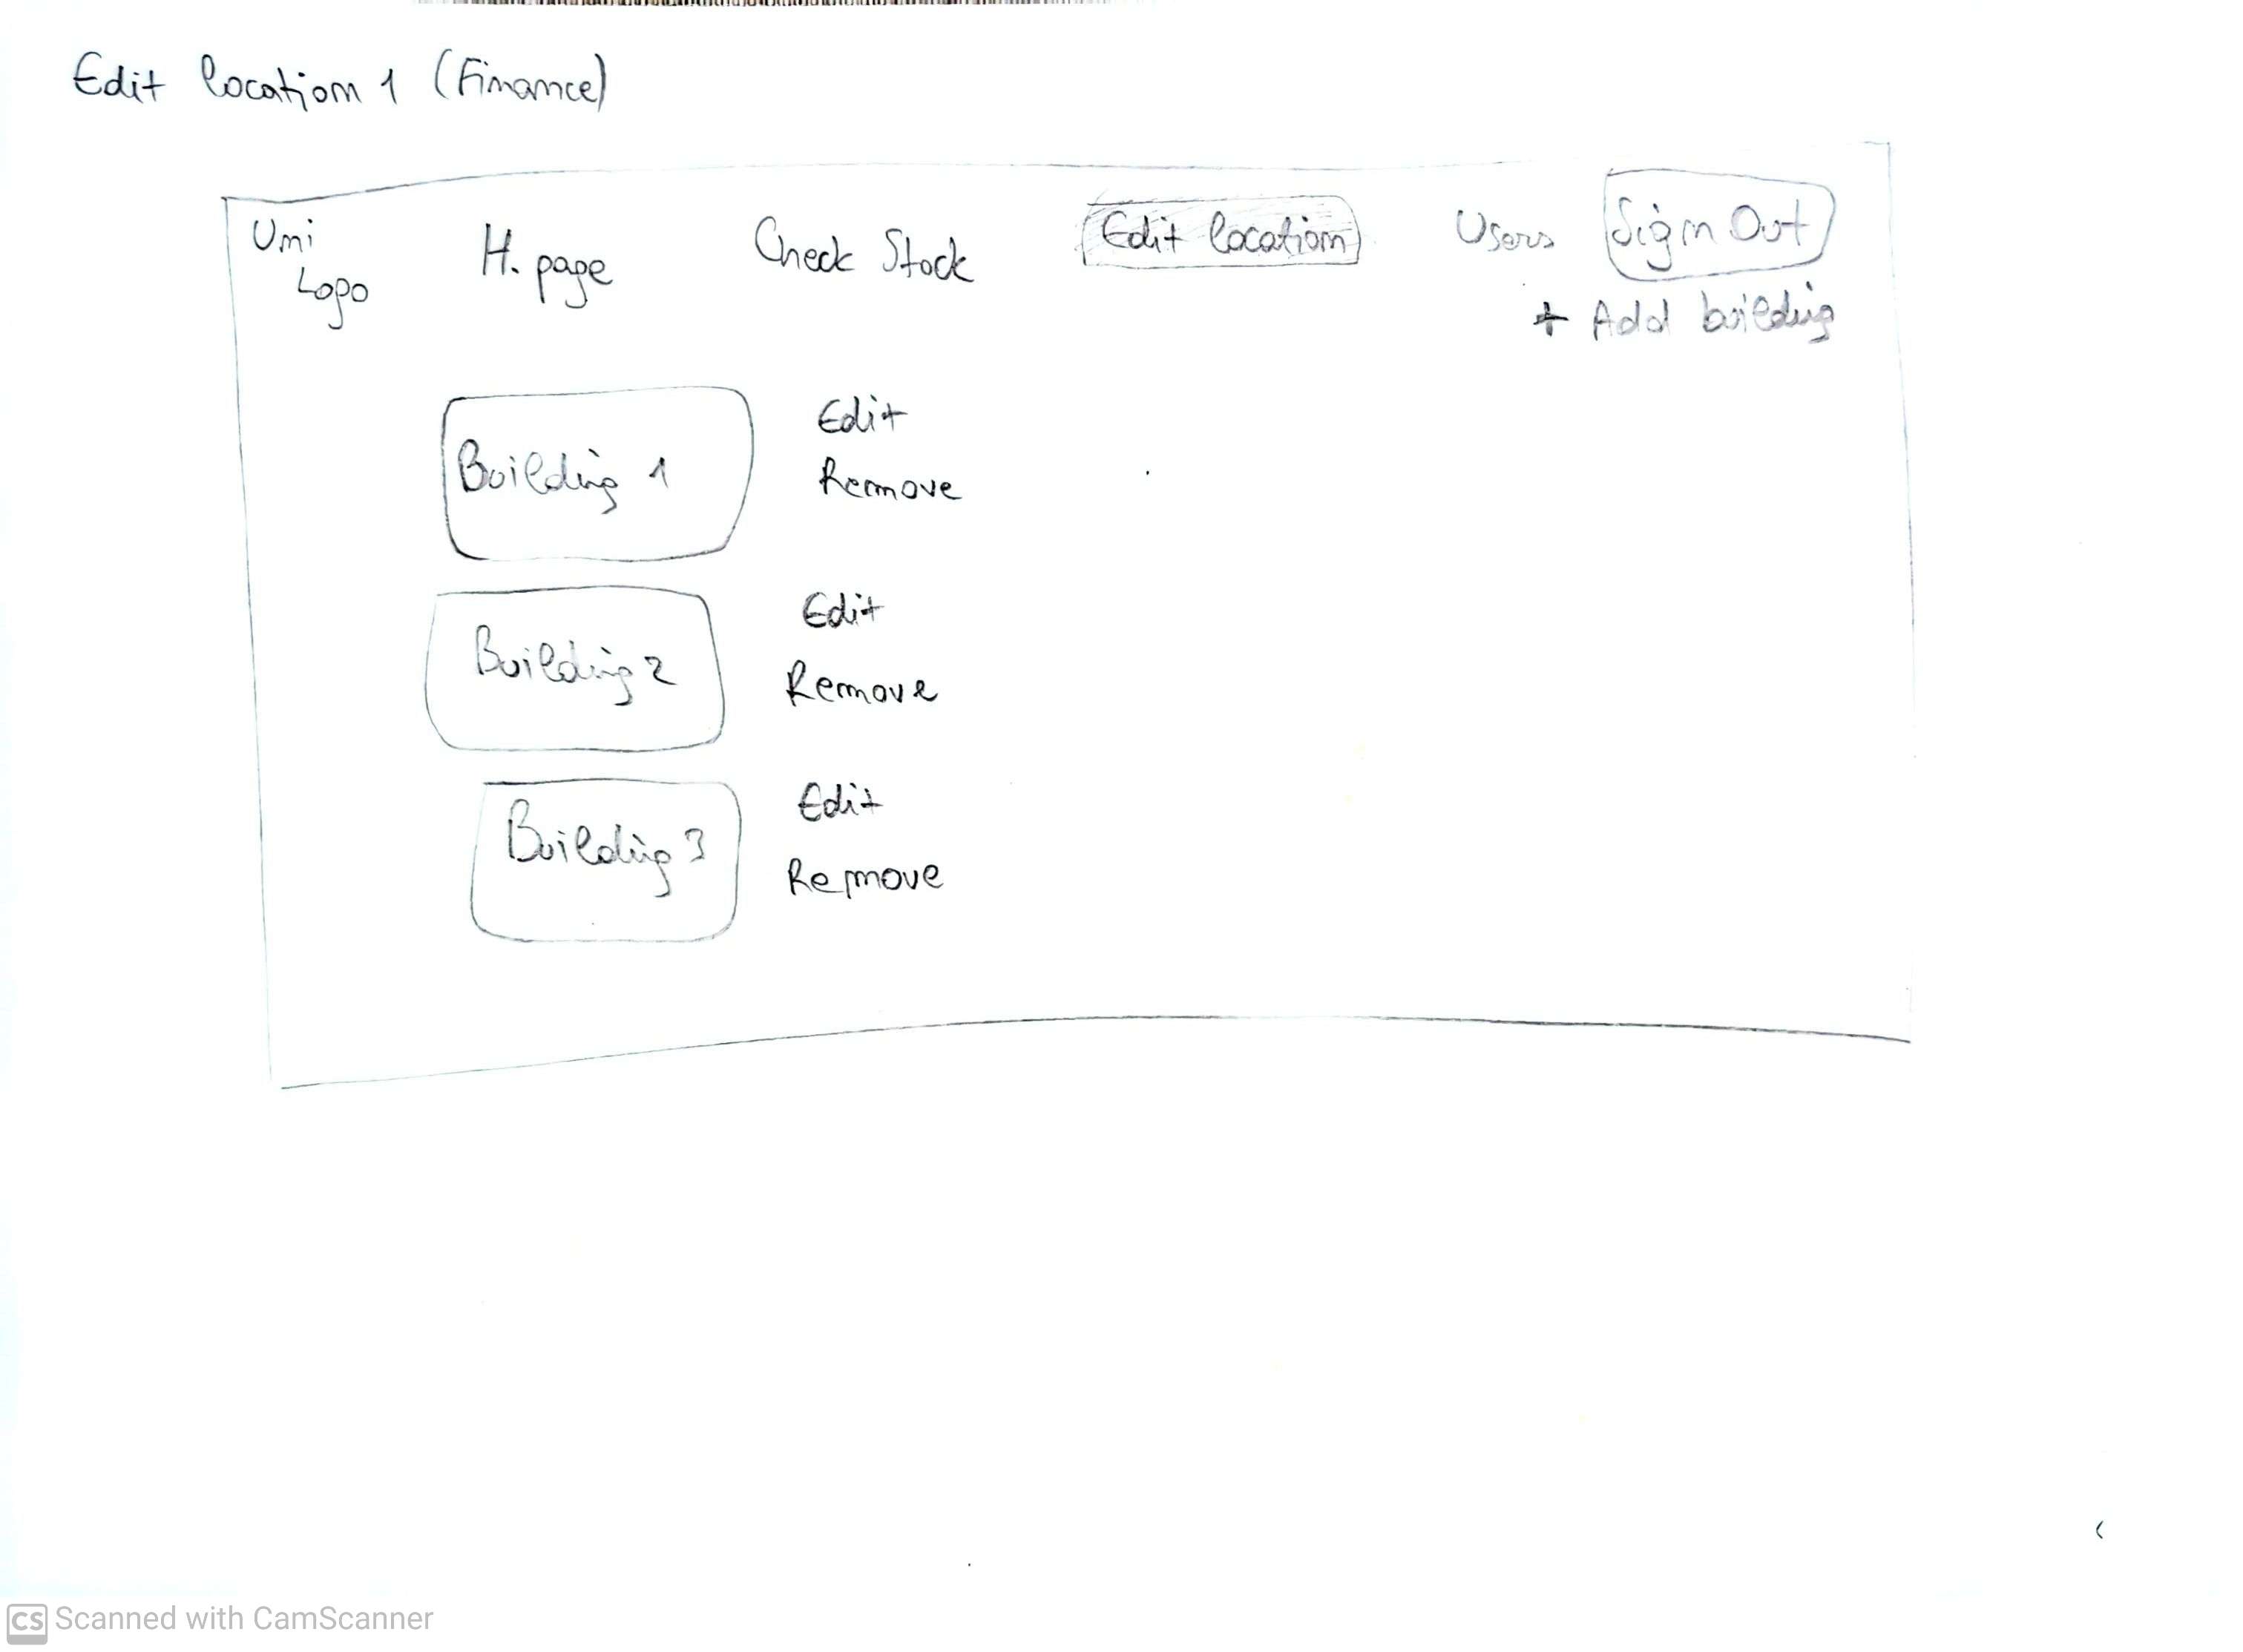 Edit location 1 (Finance)
Uni
Logo
H. page
Check Stock
Edit location
Users
Sign Out
+ Add building
Building 1
Edit
Remove
Building 2
Edit
Remove
Building 3
Edit
Remove
CS Scanned with CamScanner